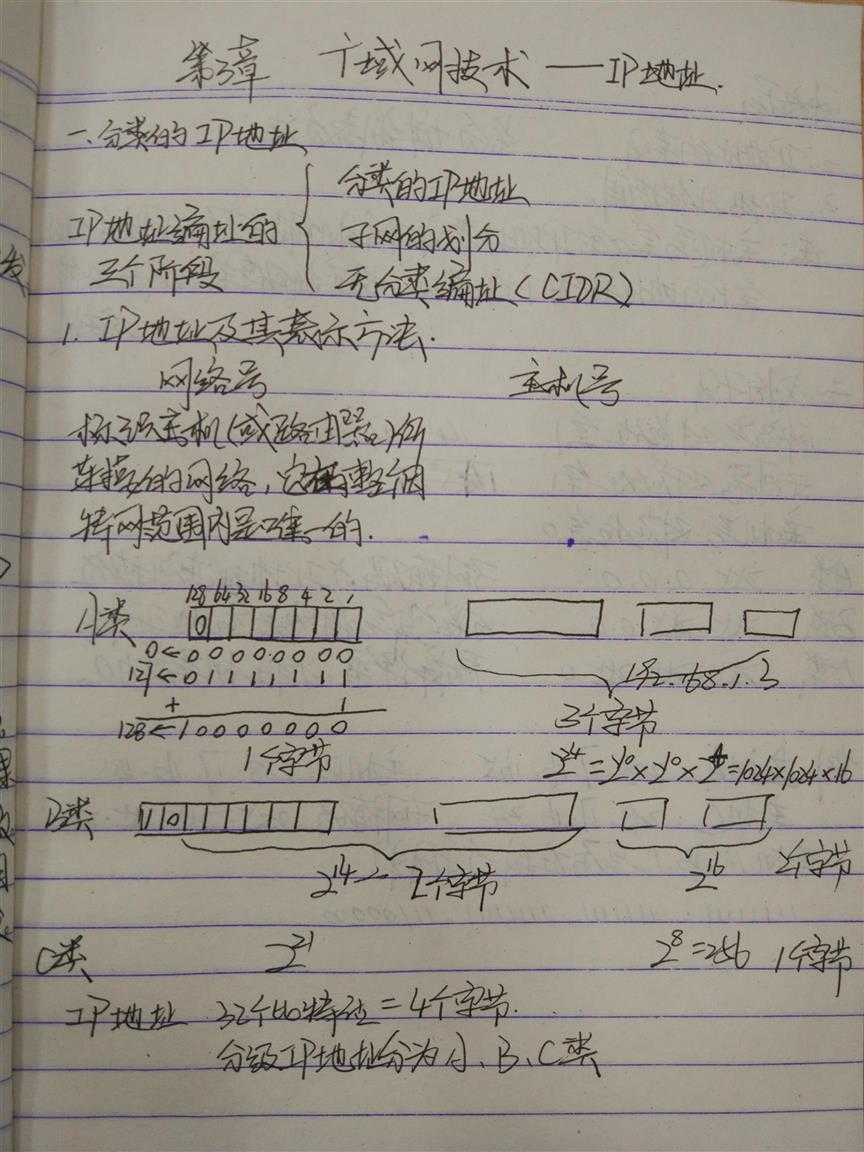 第3章 广域网技术——IP地址.
一.分类的IP地址
IP地址编址的三个阶段
分类的IP地址
子网的划分
无分类编址(CIDR)
1. IP地址及其表示方法.
网络号 主机号
标识主机(或路由器)所
连接的网络,它在整个因
特网范围内是唯一的.
A类 128 64 32 16 8 4 2 1
0
0←00000000
127←01111111
+ 1
128←10000000
1个字节
192.168.1.3
3个字节
2^24=2^10×2^10×2^4=1024×1024×16
B类 1 0
2^14 2个字节 2^16 2个字节
C类 2^21 2^8=256 1个字节
IP地址 32个比特位=4个字节.
分级IP地址分为A、B、C类